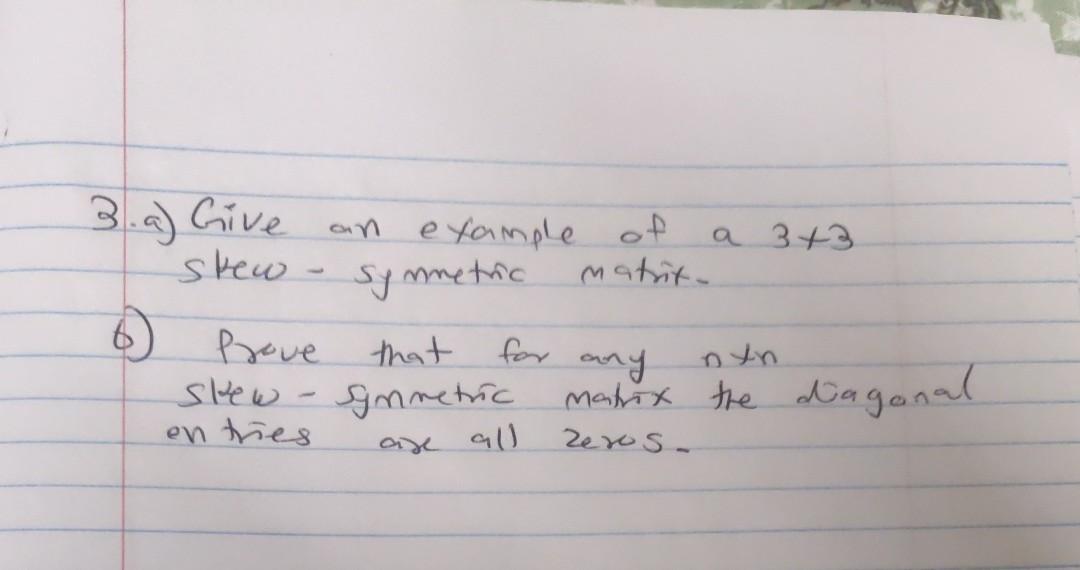 3.a) Give an example of a 3×3
skew - symmetric matrix.
b) Prove that for any n×n
skew - symmetric matrix the diagonal
entries are all zeros.